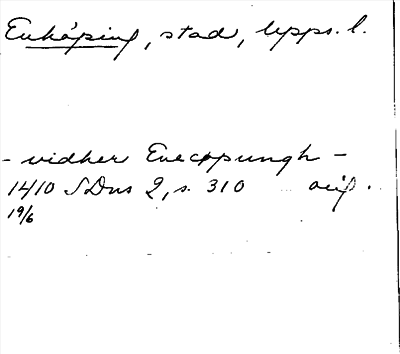 Enköping, stad, Upps. l.
- vidher Enecopungh -
1410 SDns 2, s. 310 avs.
19/6